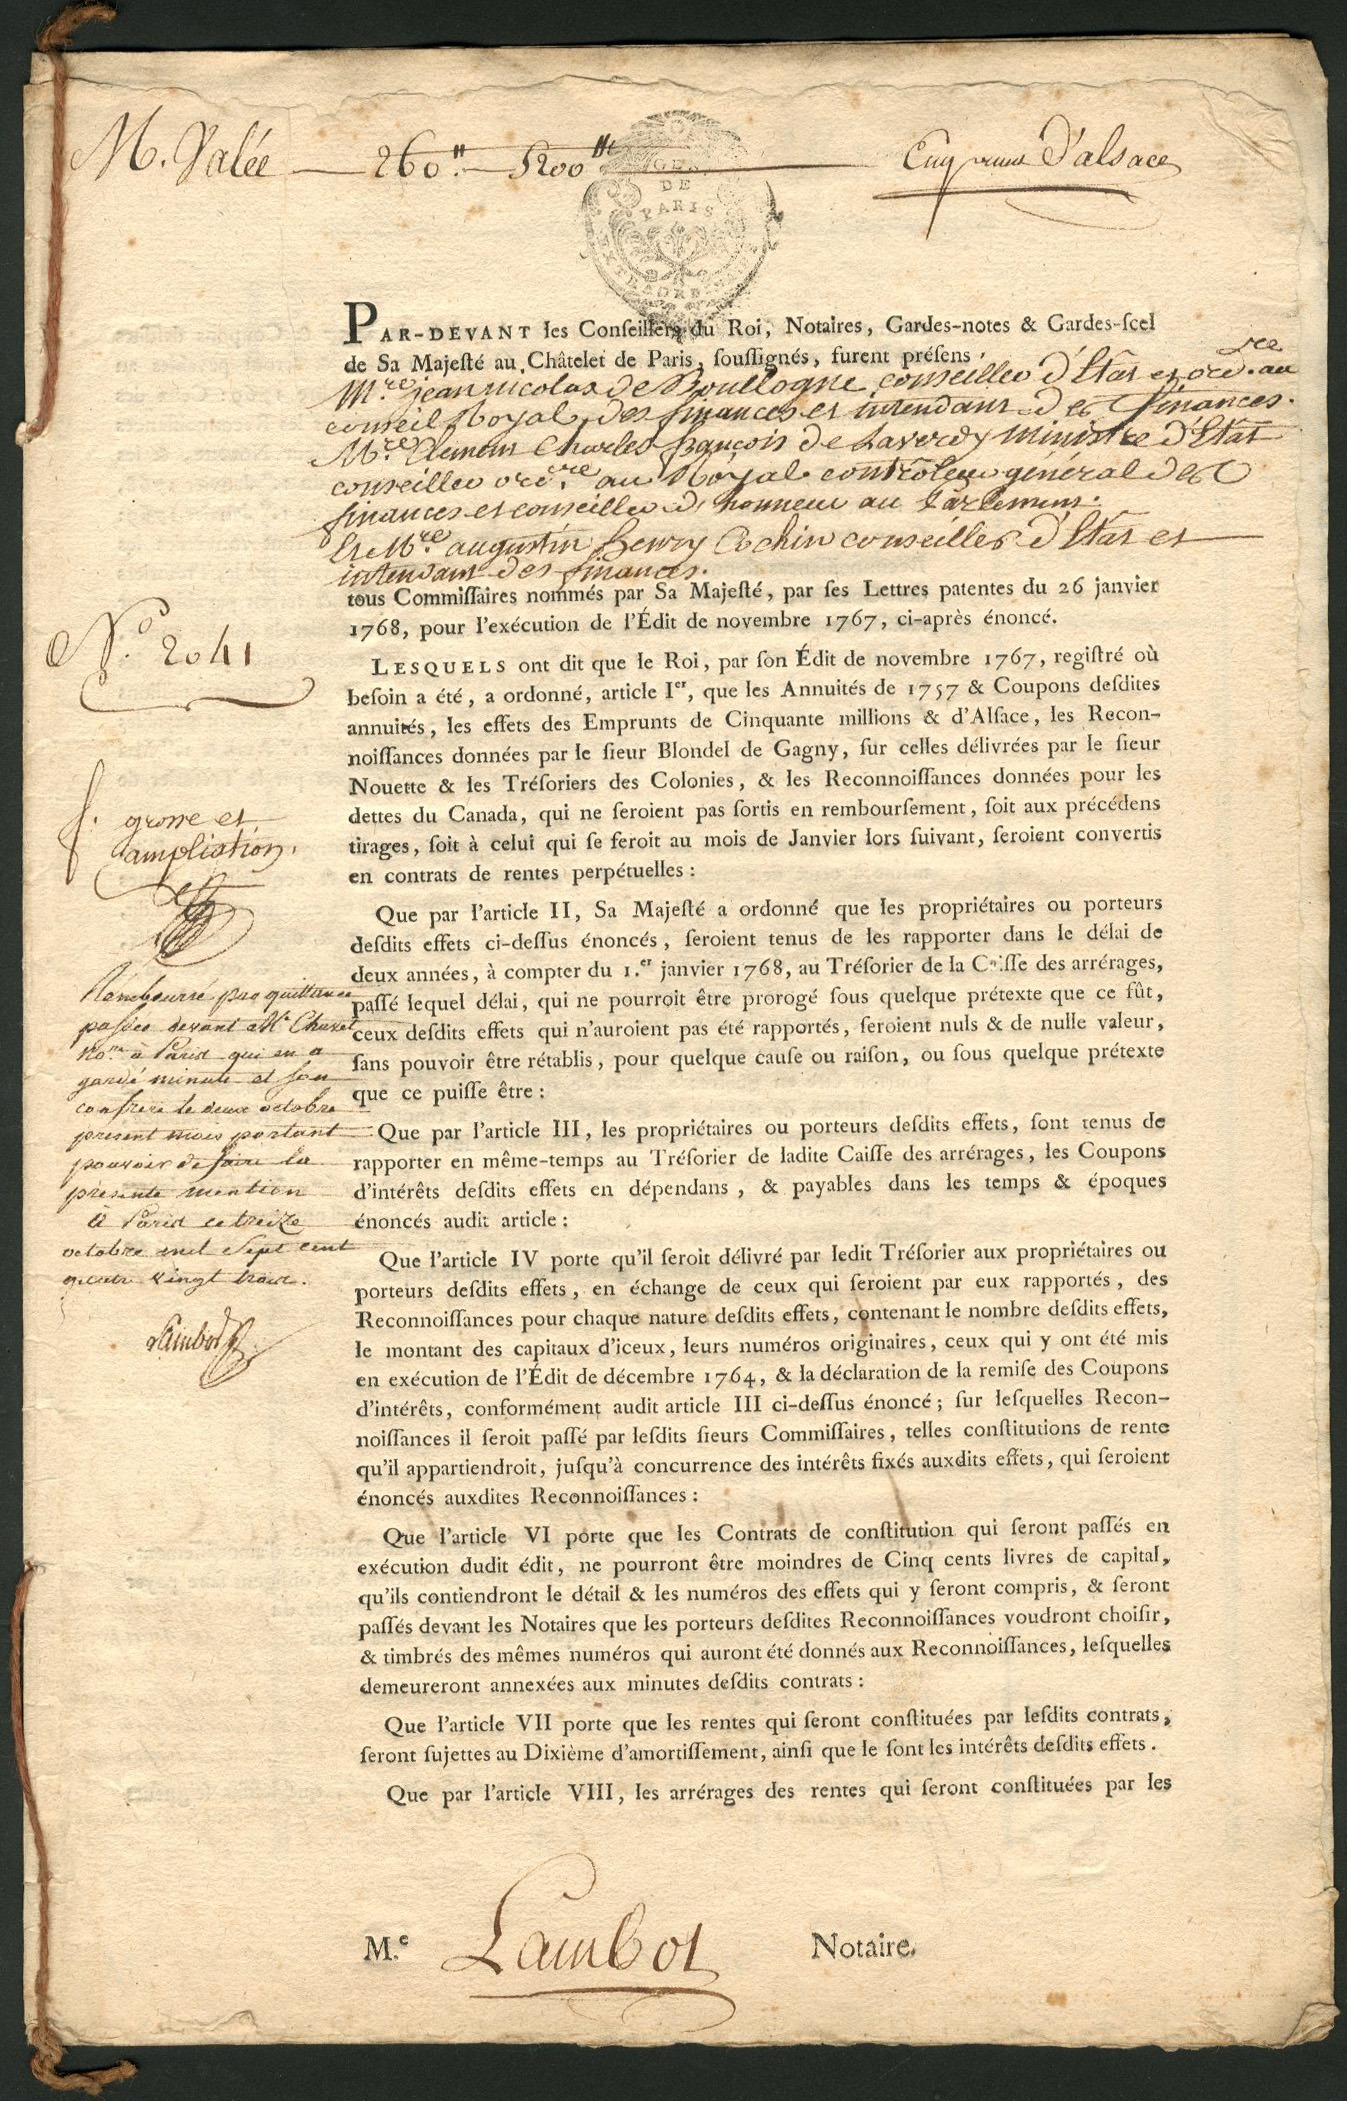 M. Valée — 260.tt — 5200tt — Emprunt d'alsace
GEN.
DE
PARIS
EXTRAORD
PAR-DEVANT les Conſeillers du Roi, Notaires, Gardes-notes & Gardes-ſcel
de Sa Majeſté au Châtelet de Paris, ſouſſignés, furent préſens
M.re jean nicolas de Boullogne conseiller d'Etat et ord.re au
conseil Royal des finances et intendant des finances.
M.re Clement Charles françois de Laverdy Ministre d'Etat
conseiller ord.re au Royal contrôleur général des
finances et conseiller d'honneur au Parlement.
Et M.re augustin henry Cochin conseiller d'Etat et
intendant des finances.
tous Commiſſaires nommés par Sa Majeſté, par ſes Lettres patentes du 26 janvier
1768, pour l'exécution de l'Édit de novembre 1767, ci-après énoncé.
N.o 2041
LESQUELS ont dit que le Roi, par ſon Édit de novembre 1767, regiſtré où
beſoin a été, a ordonné, article I.er, que les Annuités de 1757 & Coupons deſdites
annuités, les effets des Emprunts de Cinquante millions & d'Alſace, les Recon-
noiſſances données par le ſieur Blondel de Gagny, ſur celles délivrées par le ſieur
Nouette & les Tréſoriers des Colonies, & les Reconnoiſſances données pour les
dettes du Canada, qui ne ſeroient pas ſortis en rembourſement, ſoit aux précédens
tirages, ſoit à celui qui ſe feroit au mois de Janvier lors ſuivant, ſeroient convertis
en contrats de rentes perpétuelles :
f. grosse et
ampliation.
Que par l'article II, Sa Majeſté a ordonné que les propriétaires ou porteurs
deſdits effets ci-deſſus énoncés, ſeroient tenus de les rapporter dans le délai de
deux années, à compter du 1.er janvier 1768, au Tréſorier de la Caiſſe des arrérages,
paſſé lequel délai, qui ne pourroit être prorogé ſous quelque prétexte que ce fût,
ceux deſdits effets qui n'auroient pas été rapportés, ſeroient nuls & de nulle valeur,
ſans pouvoir être rétablis, pour quelque cauſe ou raiſon, ou ſous quelque prétexte
que ce puiſſe être :
Rembourré par quittance
passée devant Me Chavet
no.re à Paris qui en a
gardé minute et son
confrere le deux octobre
present mois portant
pouvoir de faire la
presente mention
à Paris ce treize
octobre mil Sept cent
quatre vingt trois.
Lambot
Que par l'article III, les propriétaires ou porteurs deſdits effets, ſont tenus de
rapporter en même-temps au Tréſorier de ladite Caiſſe des arrérages, les Coupons
d'intérêts deſdits effets en dépendans, & payables dans les temps & époques
énoncés audit article :
Que l'article IV porte qu'il ſeroit délivré par ledit Tréſorier aux propriétaires ou
porteurs deſdits effets, en échange de ceux qui ſeroient par eux rapportés, des
Reconnoiſſances pour chaque nature deſdits effets, contenant le nombre deſdits effets,
le montant des capitaux d'iceux, leurs numéros originaires, ceux qui y ont été mis
en exécution de l'Édit de décembre 1764, & la déclaration de la remiſe des Coupons
d'intérêts, conformément audit article III ci-deſſus énoncé; ſur leſquelles Recon-
noiſſances il ſeroit paſſé par leſdits ſieurs Commiſſaires, telles conſtitutions de rente
qu'il appartiendroit, juſqu'à concurrence des intérêts fixés auxdits effets, qui ſeroient
énoncés auxdites Reconnoiſſances :
Que l'article VI porte que les Contrats de conſtitution qui ſeront paſſés en
exécution dudit édit, ne pourront être moindres de Cinq cents livres de capital,
qu'ils contiendront le détail & les numéros des effets qui y ſeront compris, & ſeront
paſſés devant les Notaires que les porteurs deſdites Reconnoiſſances voudront choiſir,
& timbrés des mêmes numéros qui auront été donnés aux Reconnoiſſances, leſquelles
demeureront annexées aux minutes deſdits contrats :
Que l'article VII porte que les rentes qui ſeront conſtituées par leſdits contrats,
ſeront ſujettes au Dixième d'amortiſſement, ainſi que le ſont les intérêts deſdits effets.
Que par l'article VIII, les arrérages des rentes qui ſeront conſtituées par les
M.e Lambot Notaire.